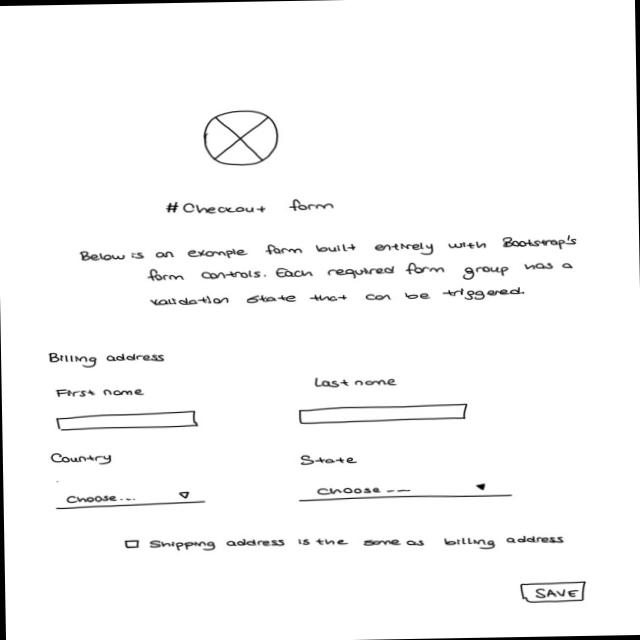 #Checkout form
Below is an example form built entirely with Bootstrap's
form controls. Each required form group has a
validation state that can be triggered.
Billing address
First name Last name
Country State
Choose... Choose --
Shipping address is the same as billing address
SAVE